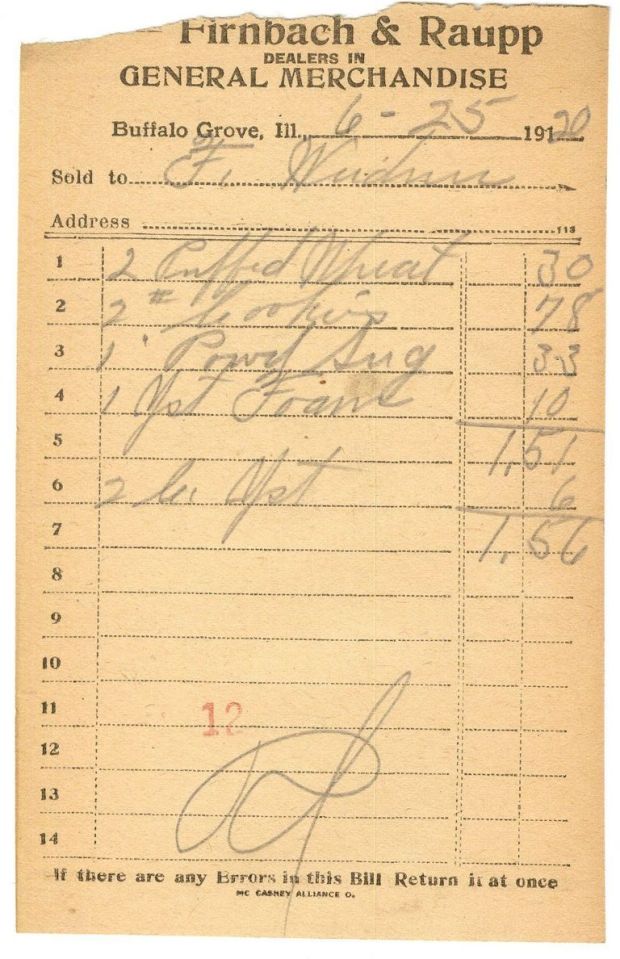 Firnbach & Raupp
DEALERS IN
GENERAL MERCHANDISE
Buffalo Grove, Ill. 6-25 191 20
Sold to F.
Address 113
1 2 Puffed Wheat 30
2 2 # Cookies 78
3 1 " Powd Sug 33
4 1 Yst Foam 10
5 1,51
6 2 Yst 6
7 1,56
8
9
10
11
12
12
13
14
If there are any Errors in this Bill Return it at once
MC CASKEY ALLIANCE O.